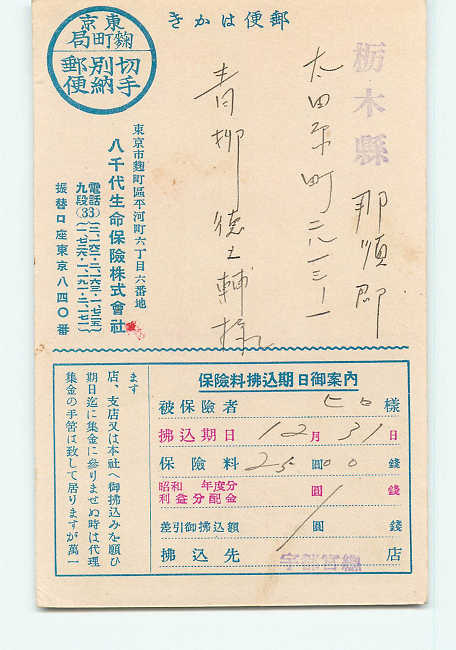 郵便はかき
東京
麴町局
切手
別納
郵便
栃木縣
那須郡
太田原町二八一三ー一
青柳德太輔様
東京市麴町區平河町六丁目六番地
八千代生命保險株式會社
電話
九段(33)
振替口座東京八四〇番
保險料拂込期日御案內
被保險者 ヒロ 樣
拂込期日 12月31日
保險料 25圓00錢
昭和 年度分
利益分配金 圓 錢
差引御拂込額 圓 錢
拂込先 宇都宮總 店
集金の手筈は致して居りますが萬一
期日迄に集金に參りませぬ時は代理
店、支店又は本社へ御拂込みを願ひ
ます